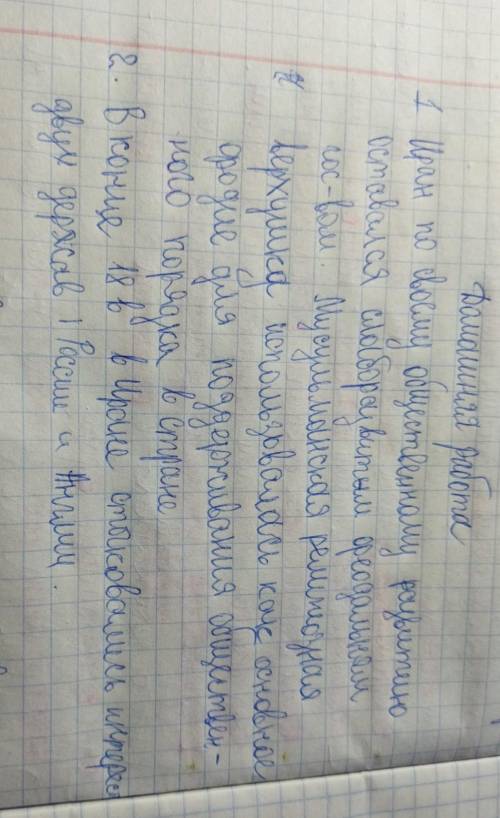 Домашняя работа
1 Иран по своему общественному развитию
оставался слаборазвитым феодальным
гос-вом. Мусульманская религиозная
верхушка использовалась как основное
орудие для поддерживания обществен-
ного порядка в стране
2. В конце 18 в в Иране столковались интере
двух держав: России и Англии.